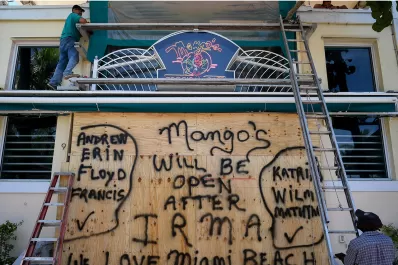 Mango's
ANDREW
ERIN
FLOYD
FRANCIS
Mango's
WILL BE
OPEN
AFTER
IRMA
WE LOVE MIAMI BEACH
WILMA